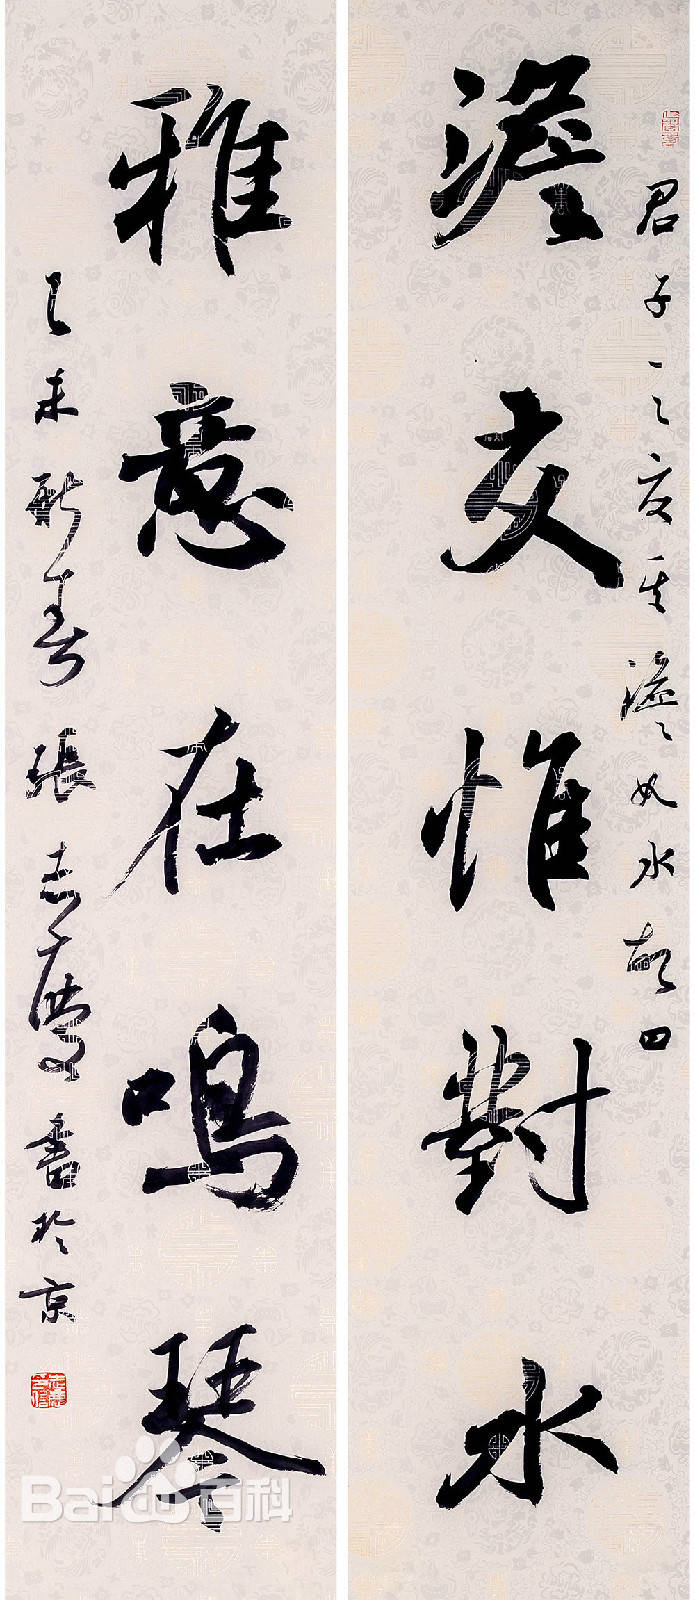 君子之交其澹如水故曰
澹交惟對水
雅意在鳴琴
乙未新春張志慶書於京
Baidu百科